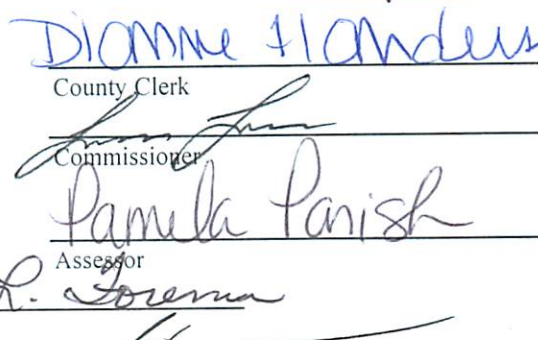 Dianne Flanders
County Clerk
Commissioner
Pamela Parish
Assessor
L. Foreman